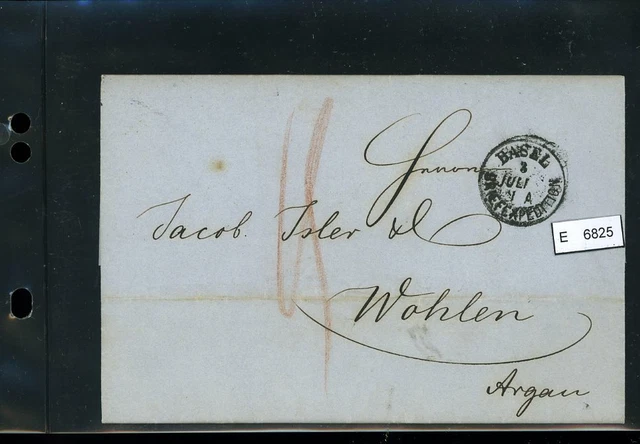 Herren
Jacob Isler & C
Wohlen
Argau
BASEL
8
JULI
BRIEFEXPEDITION
E 6825